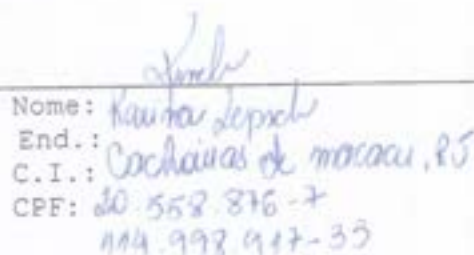 Nome: Lepsch
End.: Cachoeiras de macacu, RJ
C.I.: 20.558.876-7
CPF: 114.998.917-33